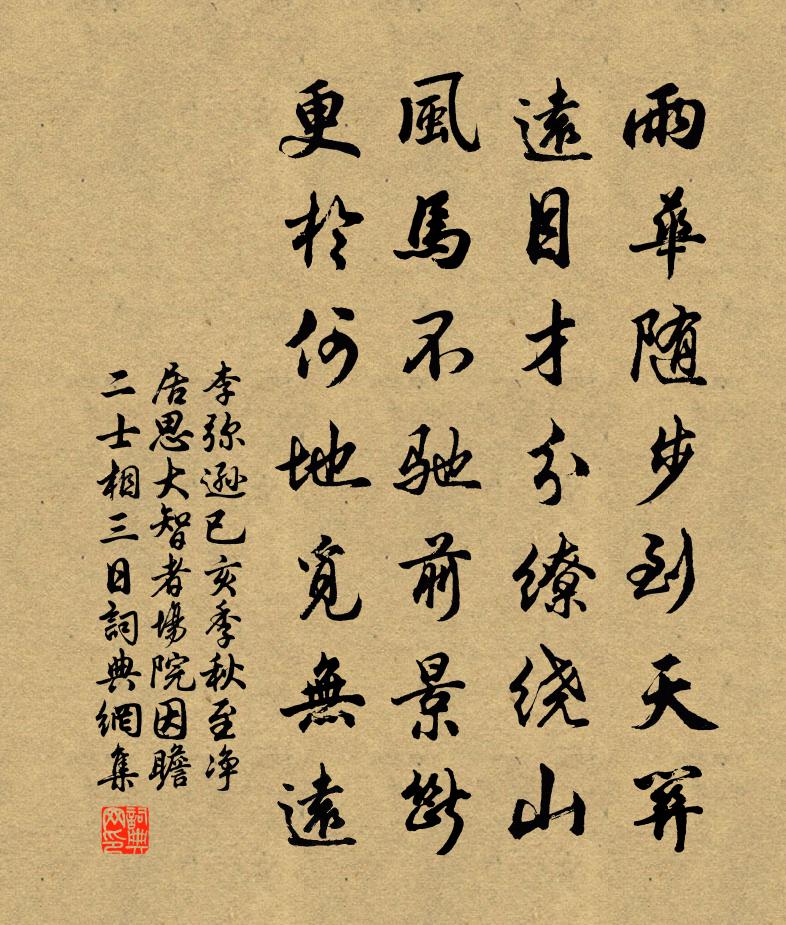 雨華随步到天關
遠目才分繚绕山
風馬不馳前景斷
更於何地覓無遠
李弥遜已亥季秋至净
居思大智者塲院因瞻
二士相三日詞典網集
詞典
网印